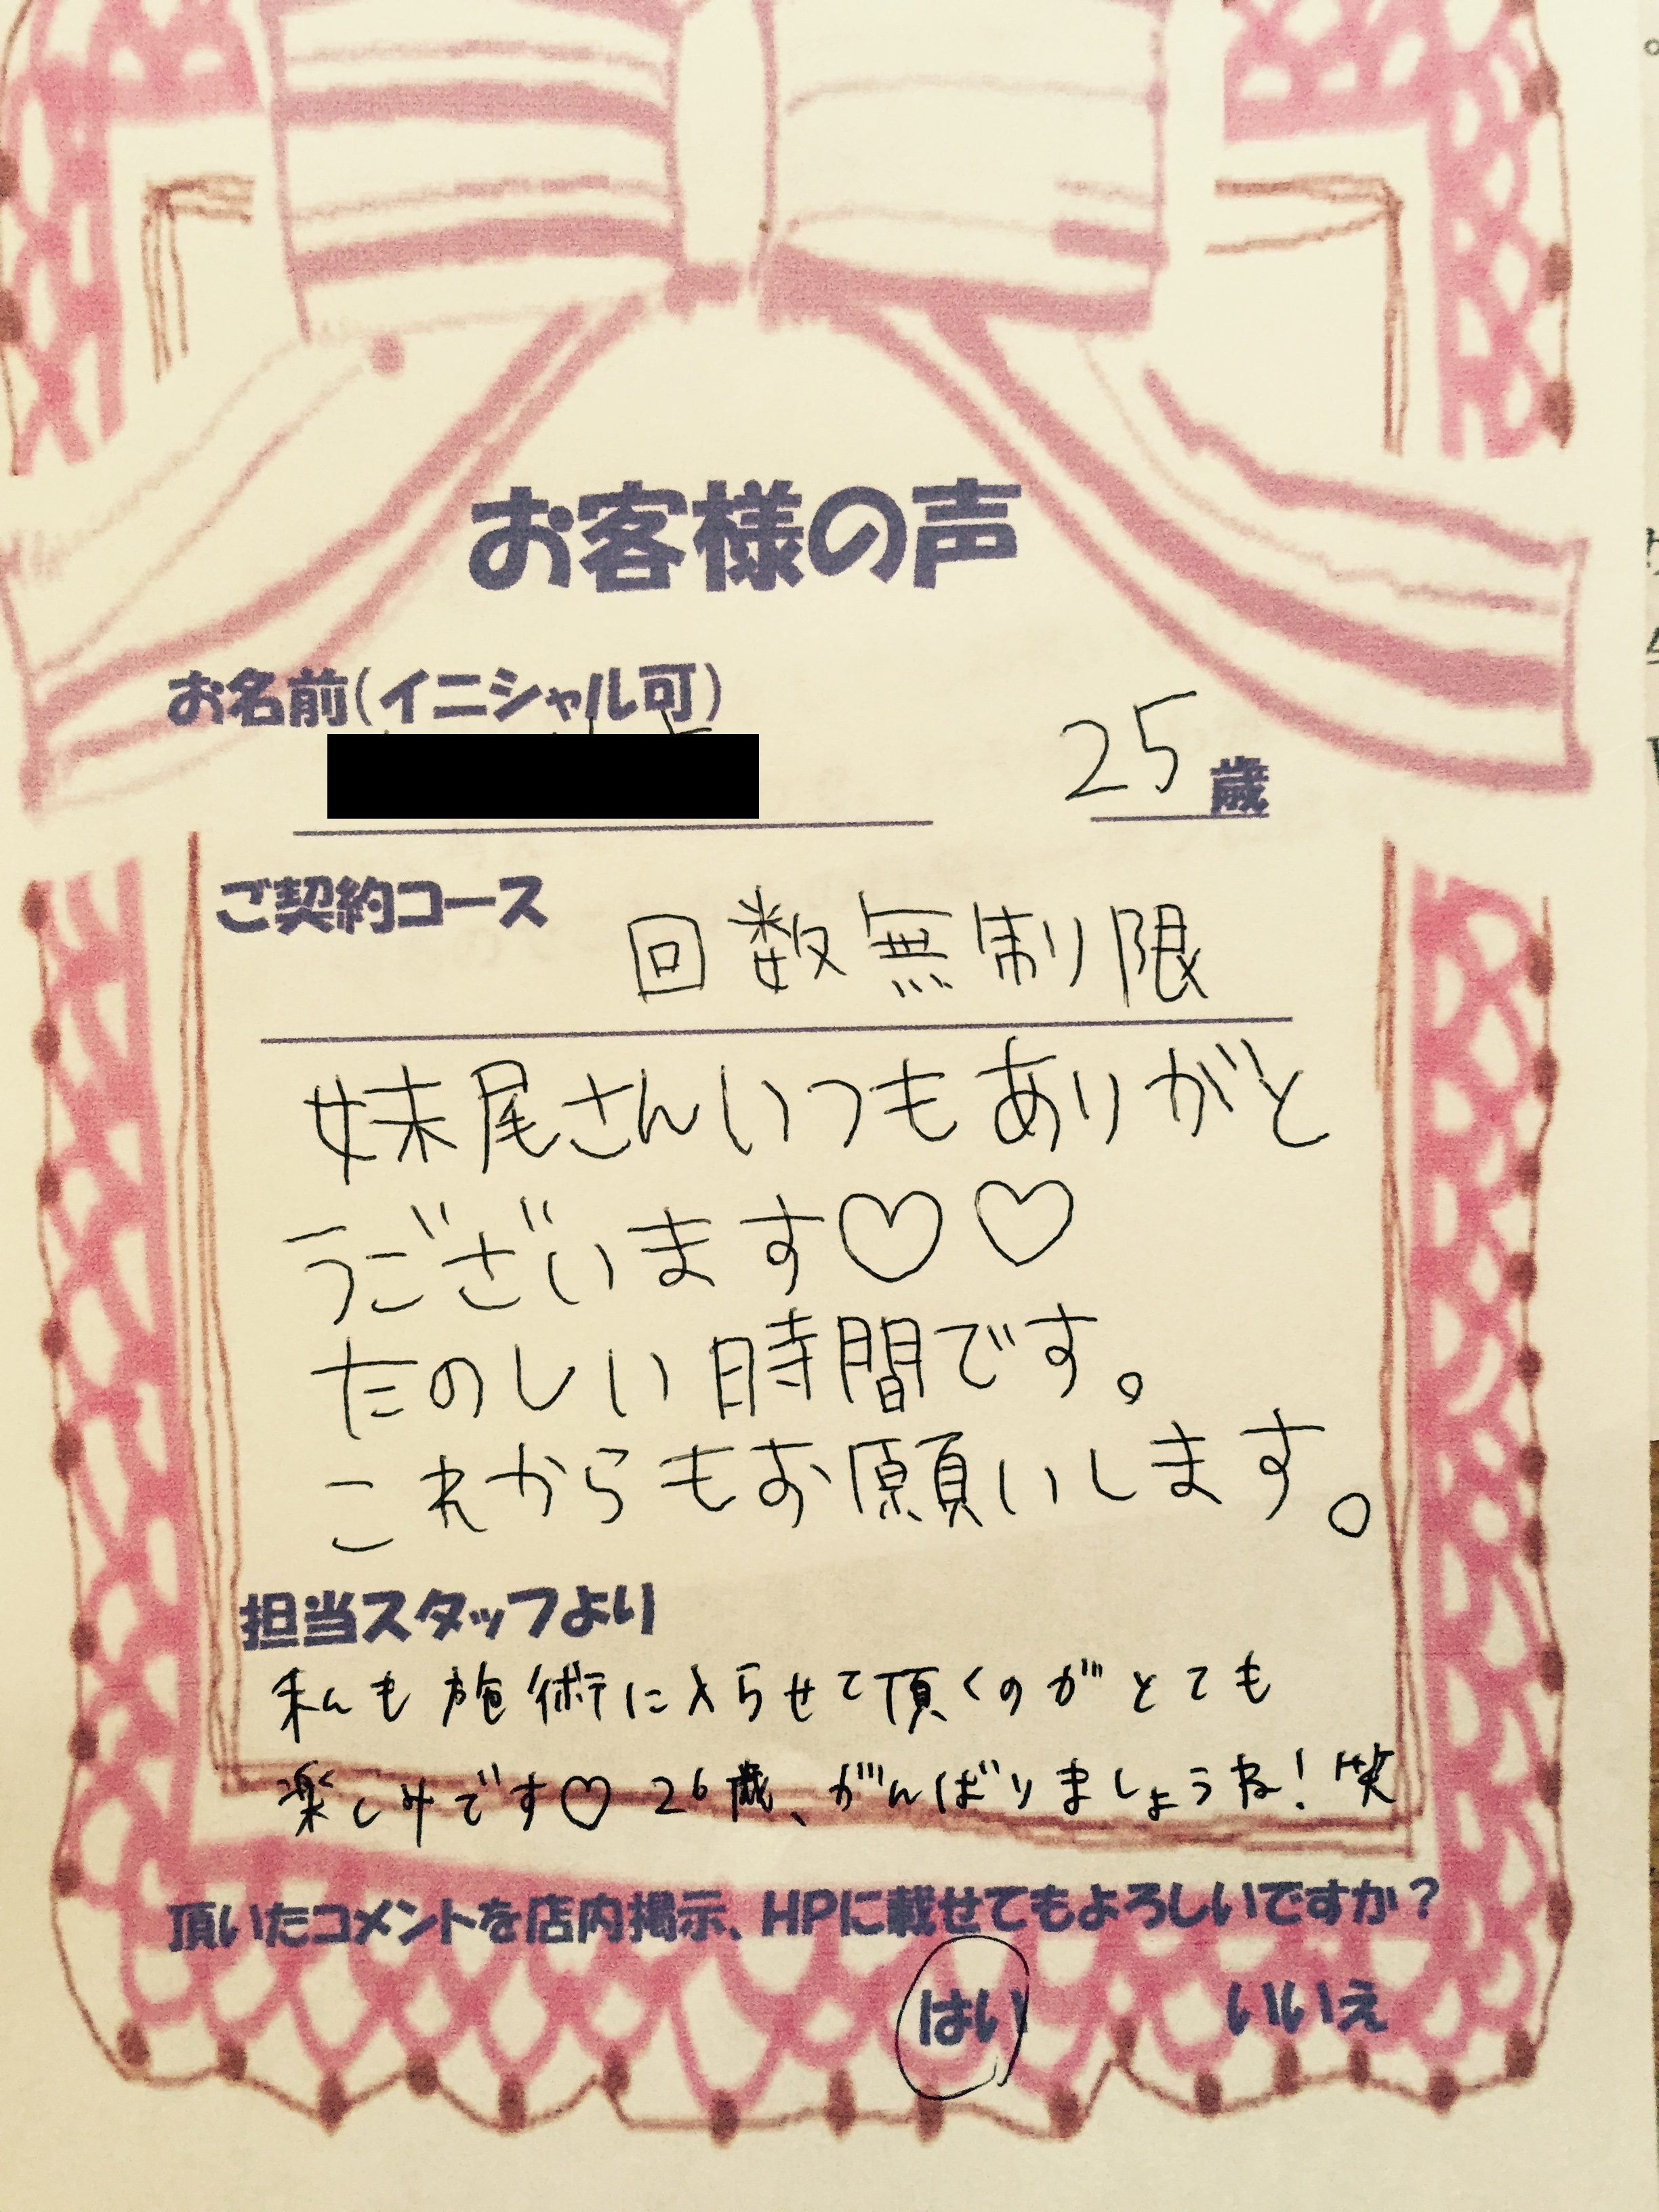 お客様の声
お名前(イニシャル可)
25歳
ご契約コース
回数無制限
妹尾さんいつもありがと
うございます♡♡
たのしい時間です。
これからもお願いします。
担当スタッフより
私も施術に入らせて頂くのがとても
楽しみです♡ 26歳、がんばりましょうね!笑
頂いたコメントを店内掲示、HPに載せてもよろしいですか?
はい いいえ